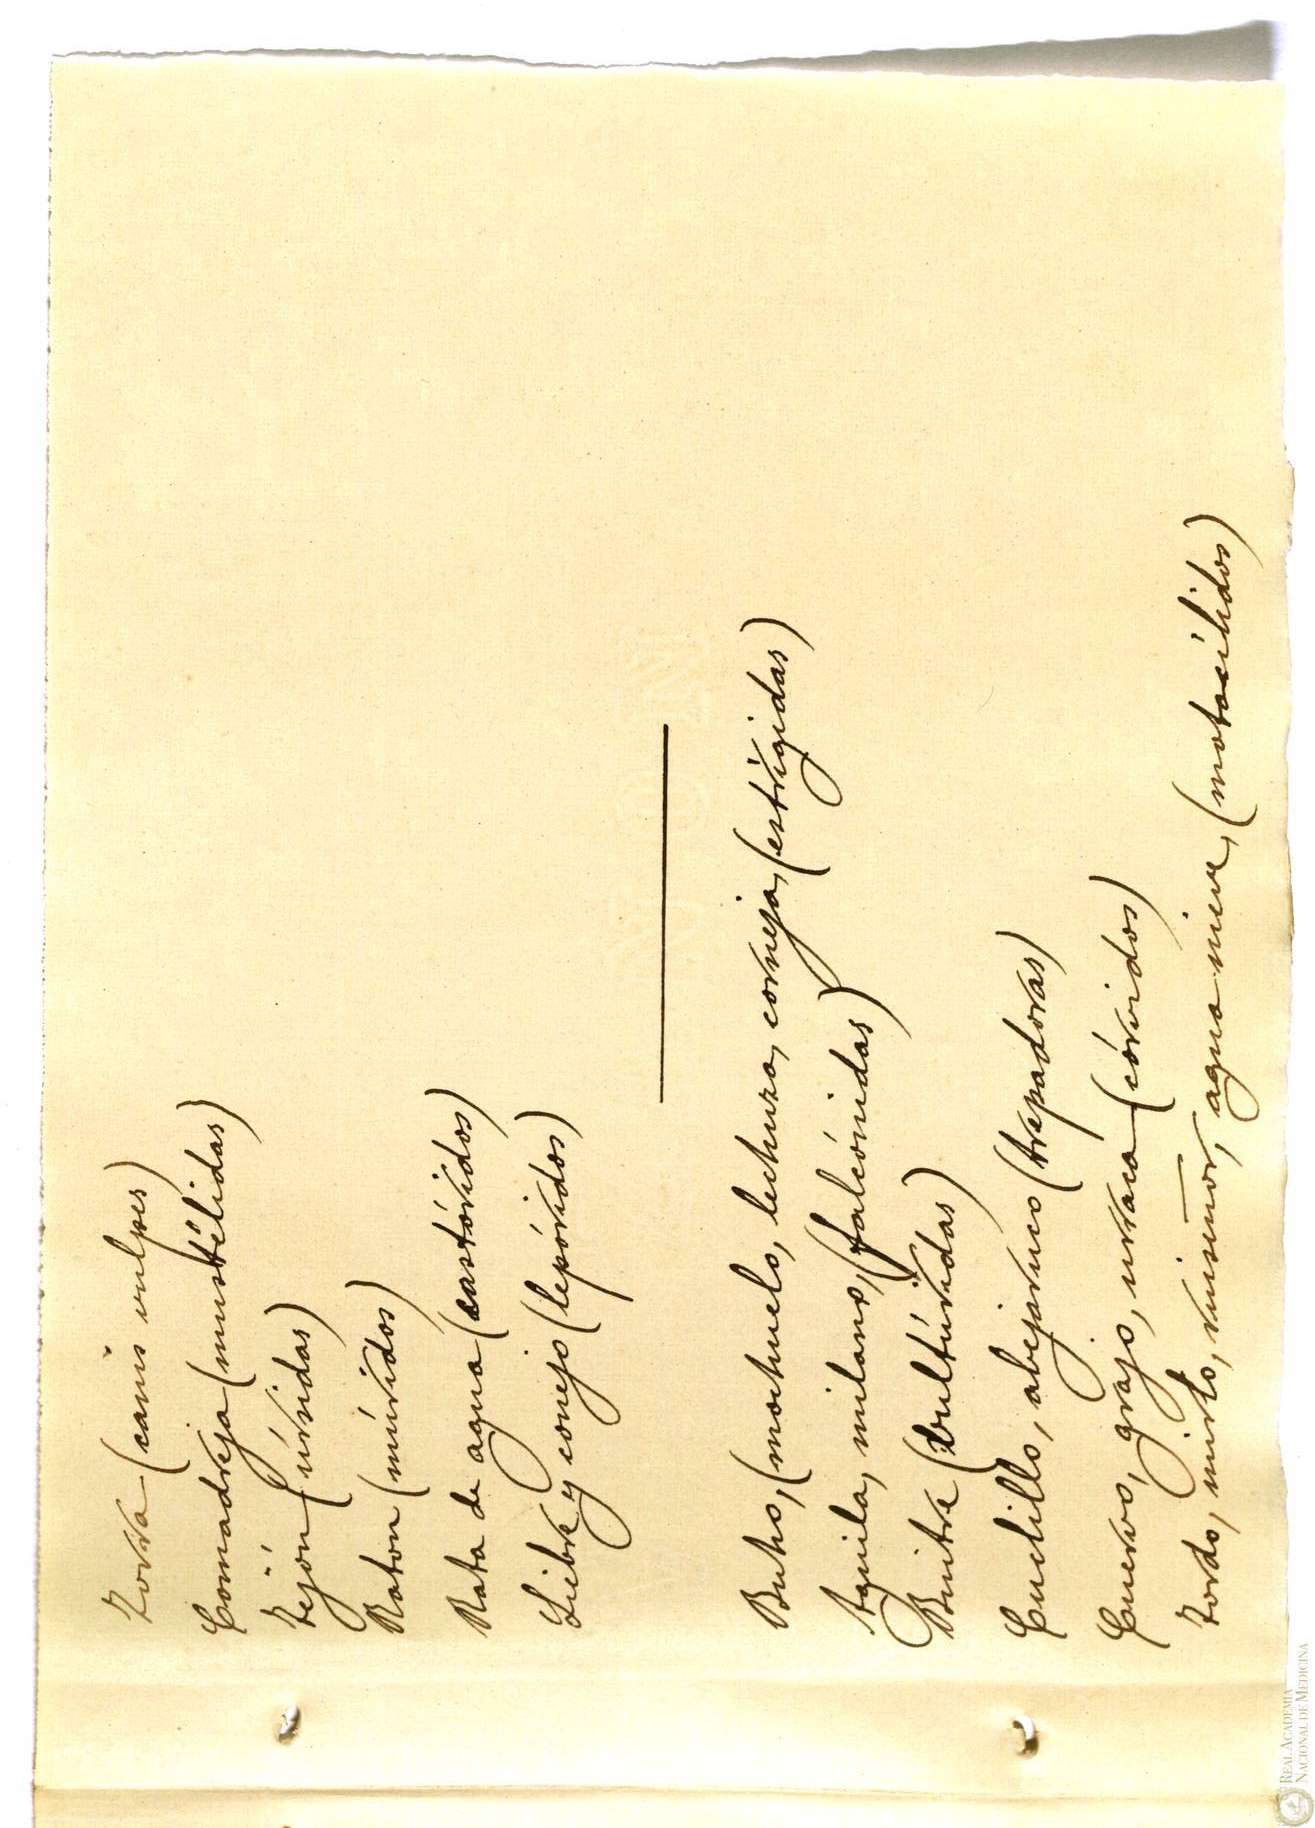 Zorra (canis vulpes)
Comadreja (mustélidas)
Tejón (úrsidas)
Raton (múridos)
Rata de agua (castóridos)
Liebre y conejo (lepóridos)
Buho, (mochuelo, lechuza, corneja, (estrígidas)
Aguila, milano, (falcónidas)
Buitre (vultúridas)
Cuclillo, abejaruco (trepadoras)
Cuervo, grajo, urraca (córvidos)
Tordo, mirlo, ruiseñor, agua nieve, (motacilidos)
REAL ACADEMIA
NACIONAL DE MEDICINA